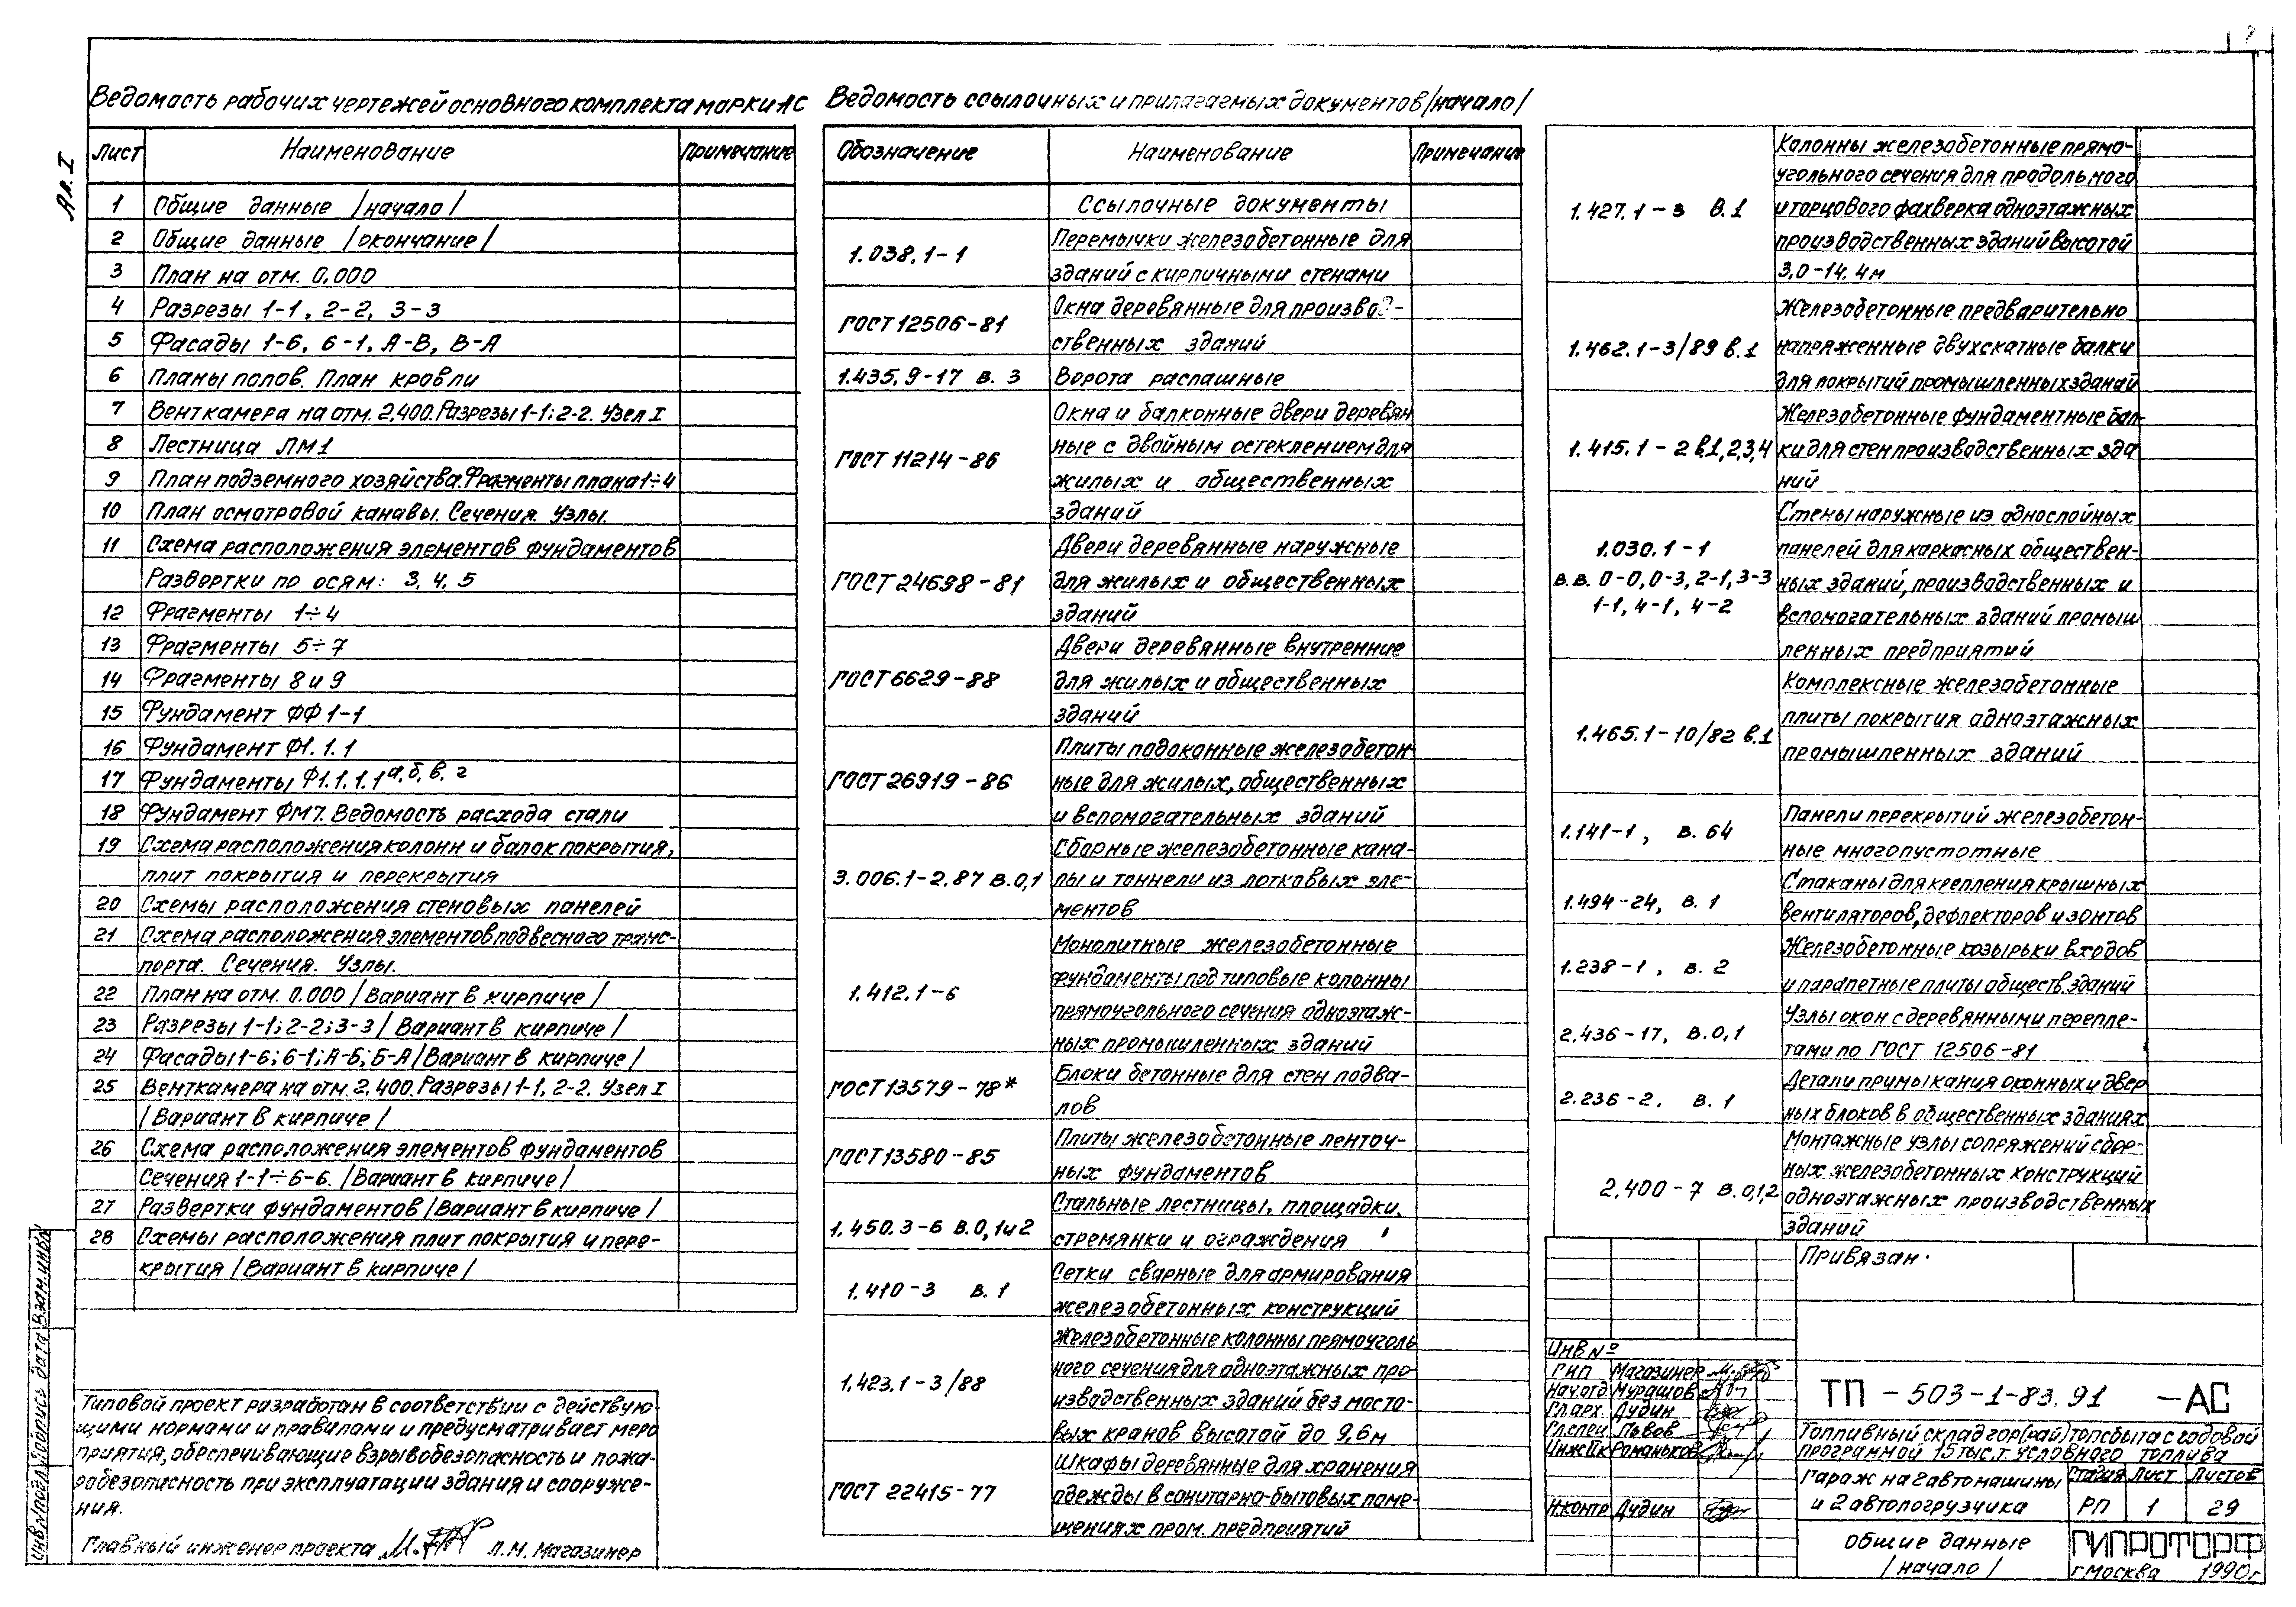 Ал. I
Ведомость рабочих чертежей основного комплекта марки АС
Лист Наименование Примечание
1 Общие данные /начало/
2 Общие данные /окончание/
3 План на отм. 0,000
4 Разрезы 1-1, 2-2, 3-3
5 Фасады 1-6, 6-1, А-В, В-А
6 Планы полов. План кровли
7 Венткамера на отм. 2,400. Разрезы 1-1; 2-2. Узел I
8 Лестница ЛМ1
9 План подземного хозяйства. Фрагменты плана 1÷4
10 План осмотровой канавы. Сечения. Узлы.
11 Схема расположения элементов фундаментов
Развертки по осям: 3, 4, 5
12 Фрагменты 1÷4
13 Фрагменты 5÷7
14 Фрагменты 8 и 9
15 Фундамент ФФ 1-1
16 Фундамент Ф1. 1. 1
17 Фундаменты Ф1. 1. 1. 1 а, б, в, г
18 Фундамент ФМ7. Ведомость расхода стали
19 Схема расположения колонн и балок покрытия,
плит покрытия и перекрытия
20 Схемы расположения стеновых панелей
21 Схема расположения элементов подвесного транс-
порта. Сечения. Узлы.
22 План на отм. 0.000 /Вариант в кирпиче/
23 Разрезы 1-1; 2-2; 3-3 /Вариант в кирпиче/
24 Фасады 1-6; 6-1; А-Б; Б-А /Вариант в кирпиче/
25 Венткамера на отм. 2,400. Разрезы 1-1, 2-2. Узел I
/Вариант в кирпиче/
26 Схема расположения элементов фундаментов
Сечения 1-1÷6-6. /Вариант в кирпиче/
27 Развертки фундаментов /Вариант в кирпиче/
28 Схемы расположения плит покрытия и пере-
крытия /Вариант в кирпиче/
Типовой проект разработан в соответствии с действую-
щими нормами и правилами и предусматривает меро
приятия, обеспечивающие взрывобезопасность и пожа-
робезопасность при эксплуатации здания и сооруже-
ния.
Главный инженер проекта Л.М. Магазинер
Инв № подл. Подпись дата Взам. инв №
Ведомость ссылочных и прилагаемых документов /начало/
Обозначение Наименование Примечание
Ссылочные документы
1.038.1-1 Перемычки железобетонные для
зданий с кирпичными стенами
ГОСТ 12506-81 Окна деревянные для произво-
ственных зданий
1.435.9-17 в. 3 Ворота распашные
ГОСТ 11214-86 Окна и балконные двери деревян
ные с двойным остеклением для
жилых и общественных
зданий
ГОСТ 24698-81 Двери деревянные наружные
для жилых и общественных
зданий
ГОСТ 6629-88 Двери деревянные внутренние
для жилых и общественных
зданий
ГОСТ 26919-86 Плиты подоконные железобетон
ные для жилых, общественных
и вспомогательных зданий
3.006.1-2.87 в.0,1 Сборные железобетонные кана-
лы и тоннели из лотковых эле-
ментов
1.412.1-6 Монолитные железобетонные
фундаменты под типовые колонны
прямоугольного сечения одноэтаж-
ных промышленных зданий
ГОСТ 13579-78* Блоки бетонные для стен подва-
лов
ГОСТ 13580-85 Плиты железобетонные ленточ-
ных фундаментов
1.450.3-6 в.0,1и2 Стальные лестницы, площадки,
стремянки и ограждения
1.410-3 в. 1 Сетки сварные для армирования
железобетонных конструкций
1.423.1-3/88 Железобетонные колонны прямоуголь
ного сечения для одноэтажных про
изводственных зданий без мосто-
вых кранов высотой до 9,6м
ГОСТ 22415-77 Шкафы деревянные для хранения
одежды в санитарно-бытовых поме-
щениях пром. предприятий
1.427.1-3 в.1 Колонны железобетонные прямо-
угольного сечения для продольного
и торцового фахверка одноэтажных
производственных зданий высотой
3,0-14,4м
1.462.1-3/89 в.1 Железобетонные предварительно
напряженные двухскатные балки
для покрытий промышленных зданий
1.415.1-2 в.1,2,3,4 Железобетонные фундаментные бал-
ки для стен производственных зда
ний
1.030.1-1
в.в. 0-0, 0-3, 2-1, 3-3
1-1, 4-1, 4-2
Стены наружные из однослойных
панелей для каркасных обществен-
ных зданий, производственных и
вспомогательных зданий промыш
ленных предприятий
1.465.1-10/82 в.1 Комплексные железобетонные
плиты покрытия одноэтажных
промышленных зданий
1.141-1, в. 64 Панели перекрытий железобетон-
ные многопустотные
1.494-24, в. 1 Стаканы для крепления крышных
вентиляторов, дефлекторов и зонтов
1.238-1, в. 2 Железобетонные козырьки входов
и парапетные плиты обществ. зданий
2.436-17, в.0,1 Узлы окон с деревянными перепле-
тами по ГОСТ 12506-81
2.236-2. в. 1 Детали примыкания оконных и двер
ных блоков в общественных зданиях
2.400-7 в.0,1,2 Монтажные узлы сопряжений сбор-
ных железобетонных конструкций
одноэтажных производственных
зданий
Привязан.
Инв №
ГИП Магазинер
Нач.отд Мурашов
Гл.арх. Дудин
Гл.спец Львов
Инж.IIк Романьков
Н.контр Дудин
ТП -503-1-83.91 -АС
Топливный склад гор(рай)топсбыта с годовой
программой 15 тыс.т. условного топлива
Гараж на 2 автомашины
и 2 автопогрузчика
Стадия Лист Листов
РП 1 29
Общие данные
/начало/
ГИПРОТОРФ
г.Москва 1990г